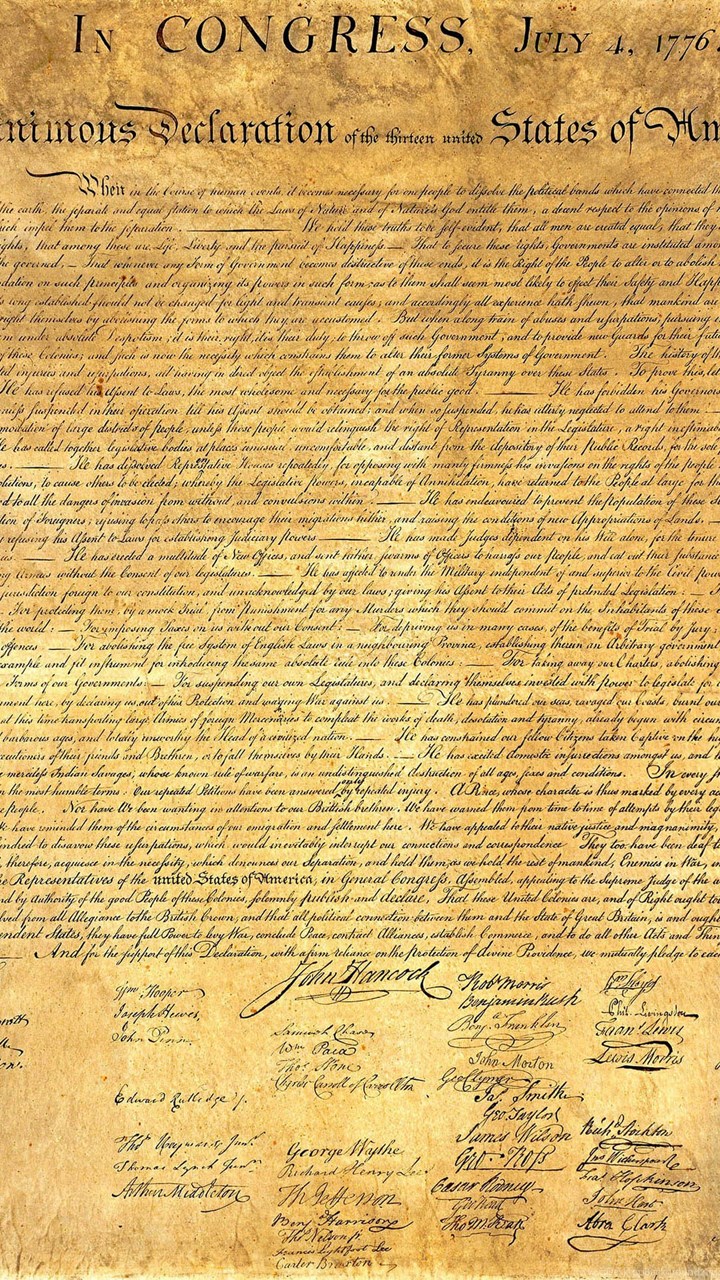 IN CONGRESS, JULY 4, 1776.
nimous Declaration of the thirteen united States of Am
When in the Course of human events, it becomes necessary for one people to dissolve the political bands which have connected th
the earth, the separate and equal station to which the Laws of Nature and of Nature's God entitle them, a decent respect to the opinions of
ich impel them to the separation. — We hold these truths to be self-evident, that all men are created equal, that they
ights, that among these are Life, Liberty and the pursuit of Happiness. — That to secure these rights, Governments are instituted amo
he governed, — That whenever any Form of Government becomes destructive of these ends, it is the Right of the People to alter or to abolish
dation on such principles and organizing its powers in such form, as to them shall seem most likely to effect their Safety and Happ
s long established should not be changed for light and transient causes; and accordingly all experience hath shewn, that mankind are
right themselves by abolishing the forms to which they are accustomed. But when a long train of abuses and usurpations, pursuing
m under absolute Despotism, it is their right, it is their duty, to throw off such Government, and to provide new Guards for their futu
f these Colonies; and such is now the necessity which constrains them to alter their former Systems of Government. The history of th
ted injuries and usurpations, all having in direct object the establishment of an absolute Tyranny over these States. To prove this, let
He has refused his Assent to Laws, the most wholesome and necessary for the public good. — He has forbidden his Governo
unless suspended in their operation till his Assent should be obtained; and when so suspended, he has utterly neglected to attend to them. —
modation of large districts of people, unless those people would relinquish the right of Representation in the Legislature, a right inestimab
He has called together legislative bodies at places unusual, uncomfortable, and distant from the depository of their Public Records, for the sole
s. — He has dissolved Representative Houses repeatedly, for opposing with manly firmness his invasions on the rights of the people.
olutions, to cause others to be elected; whereby the Legislative powers, incapable of Annihilation, have returned to the People at large for th
d to all the dangers of invasion from without, and convulsions within. — He has endeavoured to prevent the Population of these S
tion of Foreigners; refusing to pass others to encourage their migrations hither, and raising the conditions of new Appropriations of Lands. —
refusing his Assent to Laws for establishing Judiciary Powers. — He has made Judges dependent on his Will alone, for the tenure
ies. — He has erected a multitude of New Offices, and sent hither swarms of Officers to harrass our People, and eat out their substanc
ng Armies without the Consent of our legislatures. — He has affected to render the Military independent of and superior to the Civil pow
jurisdiction foreign to our constitution, and unacknowledged by our laws; giving his Assent to their Acts of pretended Legislation: —
— For protecting them, by a mock Trial, from punishment for any Murders which they should commit on the Inhabitants of these
the world: — For imposing Taxes on us without our Consent: — For depriving us in many cases, of the benefits of Trial by Jury:
offences — For abolishing the free System of English Laws in a neighbouring Province, establishing therein an Arbitrary government
example and fit instrument for introducing the same absolute rule into these Colonies: — For taking away our Charters, abolishing
Forms of our Governments: — For suspending our own Legislatures, and declaring themselves invested with power to legislate for
nment here, by declaring us out of his Protection and waging War against us. — He has plundered our seas, ravaged our Coasts, burnt ou
at this time transporting large Armies of foreign Mercenaries to compleat the works of death, desolation and tyranny, already begun with circu
barbarous ages, and totally unworthy the Head of a civilized nation. — He has constrained our fellow Citizens taken Captive on the hi
ecutioners of their friends and Brethren, or to fall themselves by their Hands. — He has excited domestic insurrections amongst us, and
e merciless Indian Savages, whose known rule of warfare, is an undistinguished destruction of all ages, sexes and conditions. In every
n the most humble terms: Our repeated Petitions have been answered only by repeated injury. A Prince, whose character is thus marked by every ac
people. Nor have We been wanting in attentions to our Brittish brethren. We have warned them from time to time of attempts by their leg
We have reminded them of the circumstances of our emigration and settlement here. We have appealed to their native justice and magnanimity,
indred to disavow these usurpations, which, would inevitably interrupt our connections and correspondence They too have been deaf t
therefore, acquiesce in the necessity, which denounces our Separation, and hold them, as we hold the rest of mankind, Enemies in War, in
e Representatives of the united States of America, in General Congress, Assembled, appealing to the Supreme Judge of the
nd by Authority of the good People of these Colonies, solemnly publish and declare, That these United Colonies are, and of Right ought to
lved from all Allegiance to the British Crown, and that all political connection between them and the State of Great Britain, is and ough
endent States, they have full Power to levy War, conclude Peace, contract Alliances, establish Commerce, and to do all other Acts and Thin
— And for the support of this Declaration, with a firm reliance on the protection of divine Providence, we mutually pledge to eac
John Hancock
Wm Hooper
Joseph Hewes,
John Penn
Edward Rutledge
Thos Heyward Junr.
Thomas Lynch Junr.
Arthur Middleton
Samuel Chase
Wm Paca
Thos Stone
Charles Carroll of Carrollton
George Wythe
Richard Henry Lee
Th Jefferson
Benj Harrison
Thos Nelson jr.
Francis Lightfoot Lee
Carter Braxton
Robt Morris
Benjamin Rush
Benj. Franklin
John Morton
Geo Clymer
Jas. Smith
Geo. Taylor
James Wilson
Geo. Ross
Caesar Rodney
Geo Read
Tho M:Kean
Wm Floyd
Phil. Livingston
Frans. Lewis
Lewis Morris
Richd Stockton
Jno Witherspoon
Fras. Hopkinson
John Hart
Abra Clark